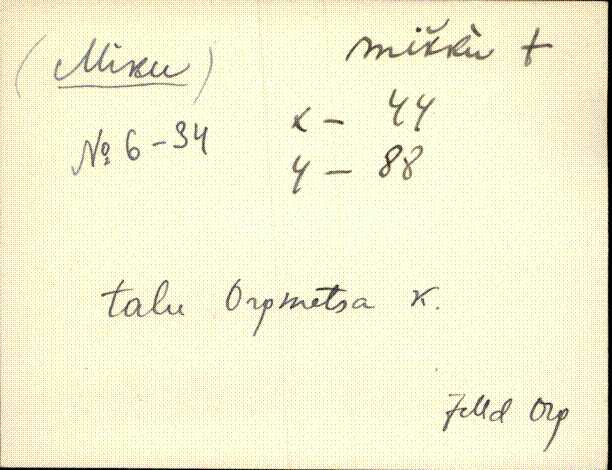 (Miku) mikkù +
№ 6-34 x - 44
y - 88
talu Orpmetsa k.
Jõld Orp